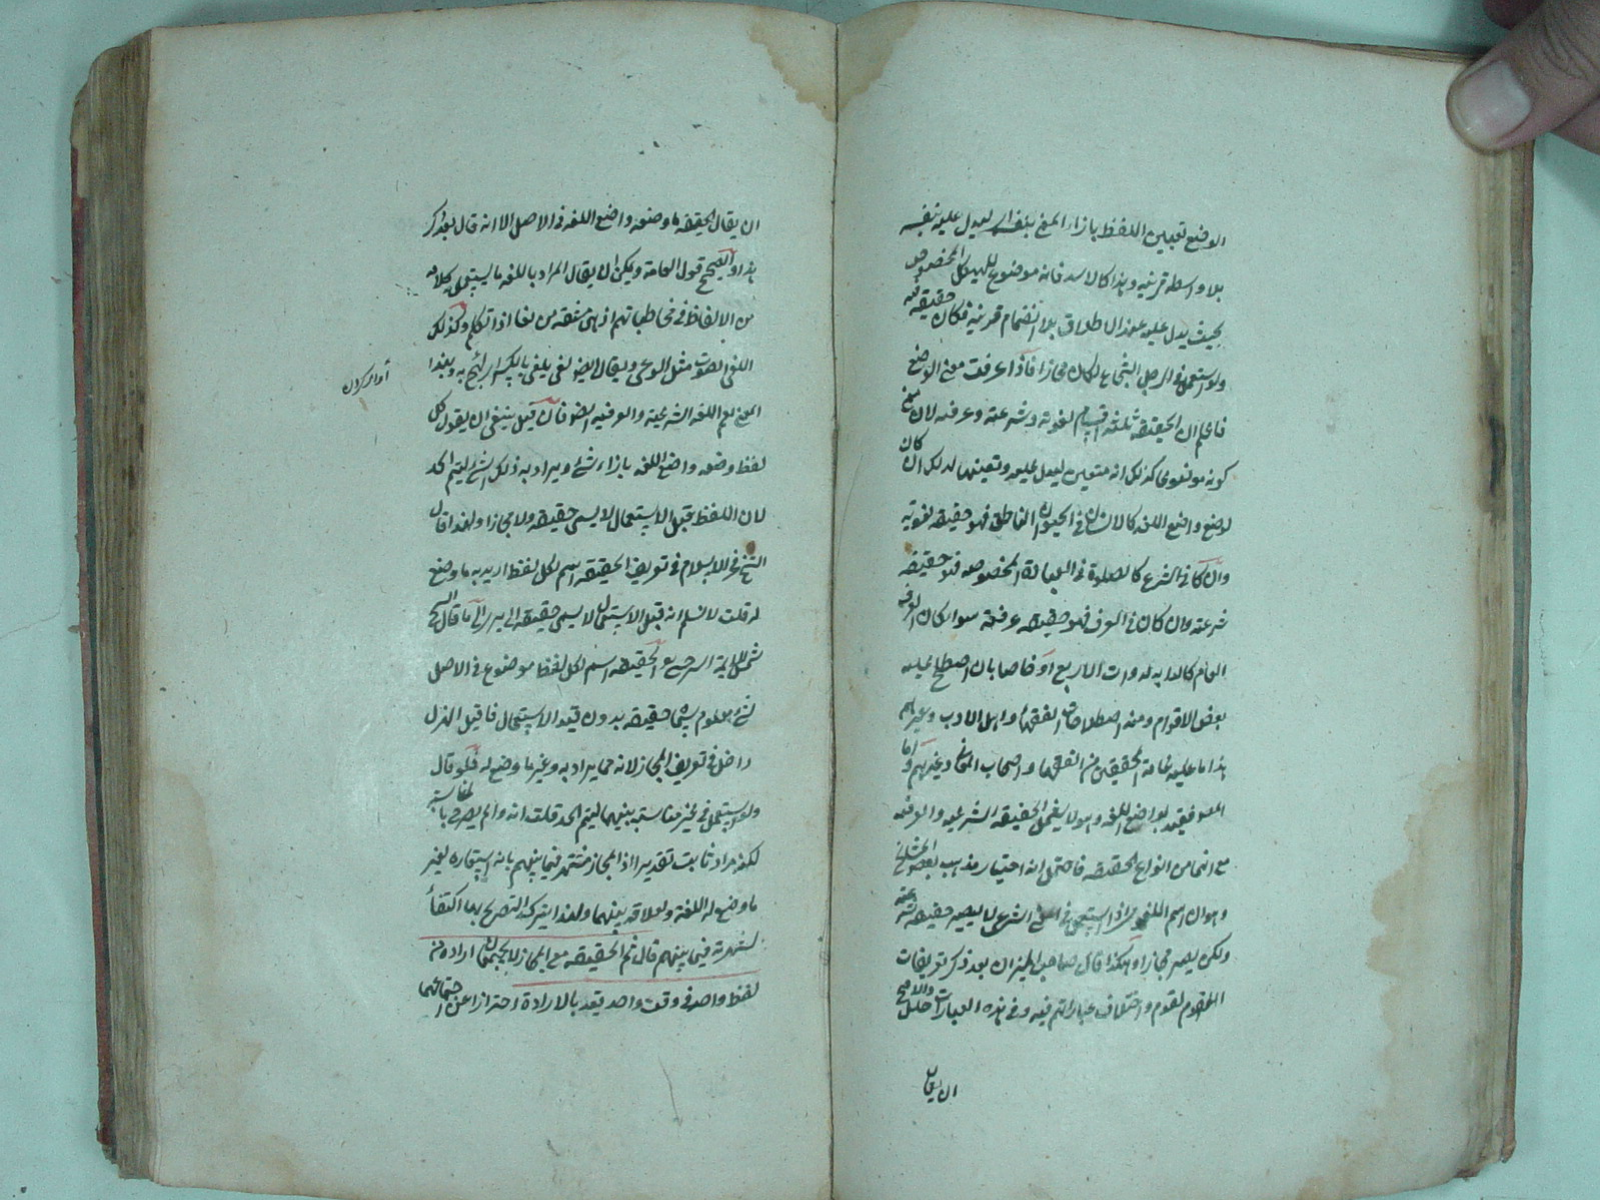 الوضع تعيين اللفظ بازاء المعنى بنفسه ليدل عليه بنفسه
بلا واسطة قرينة وهذا كالاسد فانه موضوع للهيكل المخصوص
بحيث يدل عليه عند الاطلاق بلا انضمام قرينة فكان حقيقة فيه
ولو استعمل في الرجل الشجاع لكان مجازا فاذا عرفت معنى الوضع
فاعلم ان الحقيقة ثلثة اقسام لغوية وشرعية وعرفية لان
كونه موضوعا كذلك انه متعين ليدل عليه وتعينها لذلك ان كان
لوضع واضع اللغة كالانسان في الحيوان الناطق فهو حقيقة لغوية
وان كان في الشرع كالصلوة في العبادة المخصوصة فهو حقيقة
شرعية وان كان في العرف فهو حقيقة عرفية سواء كان العرف
العام كالدابة لذوات الاربع او خاصا بان اصطلح عليه
بعض الاقوام ومنه اصطلاحات الفقهاء واهل الادب وغيرهم
هذا ما عليه عامة المحققين من الفقهاء واصحاب المعاني وغيرهم واما
المص فقيد بواضع اللغة وهو لا يشمل الحقيقة الشرعية والعرفية
مع انهما من انواع الحقيقة فاحتمل انه اختيار مذهب بعض المشايخ
وهو ان اسم اللغة اذا استعمل في المعنى الشرعي لا يصير حقيقة شرعية
ولكن يصير مجازا وهكذا قال صاحب الميزان بعد ذكر تعريفات
القوم واختلاف عباراتهم فيه وفي هذه العبارات خلل والاصح
ان يقال
ان يقال الحقيقة ما وضعه واضع اللغة في الاصل الا انه قال بعد ذكر
هذا والصحيح قول العامة ويمكن ان يقال المراد باللغة ما يستعمل كلامه
من الالفاظ في مخاطباتهم اذ هي مشتقة من لغا اذا تكلم وكذلك
اللغى الصوت مثل الوعى ويقال ايضا لغى يلغى بالكسر اى لهج به وبهذا
آواز كردن
المعنى يعم اللغة الشرعية والعرفية ايضا فان قيل ينبغي ان يقول كل
لفظ وضعه واضع اللغة بازاء شئ ويراد به ذلك الشئ ليتم الحد
لان اللفظ قبل الاستعمال لا يسمى حقيقة ولا مجازا ولهذا قال
الشيخ فخر الاسلام في تعريف الحقيقة اسم لكل لفظ اريد به ما وضع
له قلت لا نسلم انه قبل الاستعمال لا يسمى حقيقة الا يرى الى ما قال الشيخ
شمس الائمة السرخسي الحقيقة اسم لكل لفظ موضوع في الاصل
لشئ معلوم سماه حقيقة بدون قيد الاستعمال فان قيل الهزل
داخل في تعريف المجاز لانه مما يراد به وغير ما وضع له فلو قال
ولو استعمل في غيره لمناسبة بينهما ليتم الحد قلت انه وان لم يصرح بالمناسبة
لكنه مراد ثابت تقديرا اذ المجاز مشتهر فيما بينهم بانه استعارة لغير
ما وضع له اللغة ولعلاقة بينهما ولهذا يترك التصريح بها اكتفاء
لشهرته فيما بينهم قال ثم الحقيقة مع المجاز لا يجتمعان ارادة من
لفظ واحد في وقت واحد يقيد بالارادة احترازا عن اجتماعهما